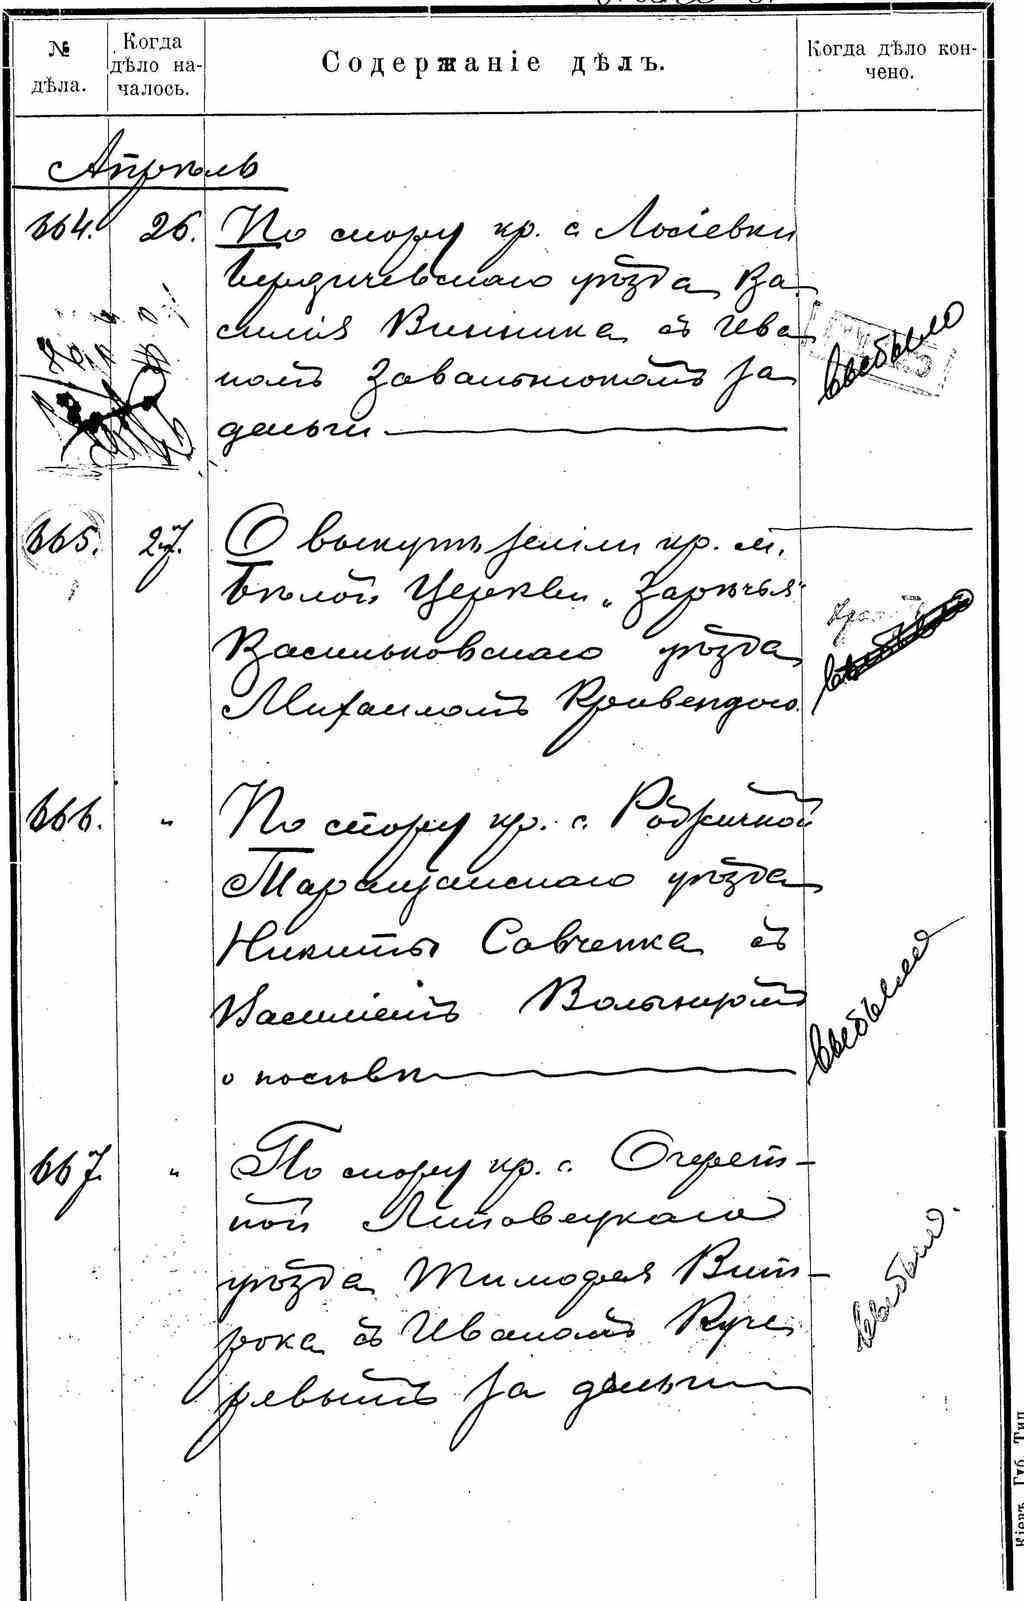 № дѣла.
Когда дѣло на-
чалось.
Содержаніе дѣлъ.
Когда дѣло кон-
чено.
Апрѣль
664. 26. По спору кр. с. Лосіевки
Бердичевскаго уѣзда Ва-
силія Винника съ Ива
номъ Завальнюкомъ за
деньги
выбыло
665. 27. О выкупѣ земли кр. м.
Бѣлой Церкви „Зарѣчья"
Васильковскаго уѣзда
Михаиломъ Кривендою.
выбыло
666. " По спору кр. с.
Таращанскаго уѣзда
Никиты Савченка съ
Василіемъ Волынцомъ
о посѣвѣ
выбыло
667. " По спору кр. с. Очерет-
ной Липовецкаго
уѣзда Тимофея Вит-
рока съ Иваномъ Куче
рявымъ за деньги
выбыло.
Кіевъ. Губ. Тип.